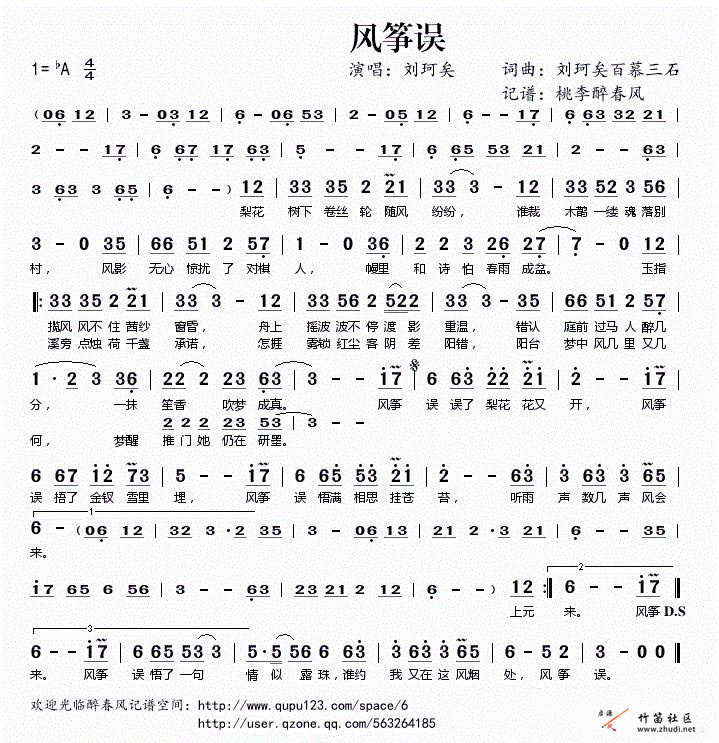 风筝误
1=♭A 4/4 演唱：刘珂矣 词曲：刘珂矣百慕三石
记谱：桃李醉春风
(06 12 | 3 - 03 12 | 6 - 06 53 | 2 - - 12 | 6 - - 17 | 66 32 21 |
2 - - 17 | 6 67 17 63 | 5 - - 17 | 6 65 53 21 | 2 - - 63 |
3 63 3 65 | 6 - - ) 12 | 33 35 2 21 | 33 3 - 12 | 33 52 3 56 |
梨花 树下 卷丝 轮 随风 纷纷， 谁裁 木鹊 一缕 魂 落别
3 - 0 35 | 66 51 2 57 | 3 - 0 36 | 2 2 3 26 27 | 7 - 0 12 |
村， 风影 无心 惊扰 了 对棋 人， 幔里 和 诗 怕 春雨 成盆。 玉指
‖: 33 35 2 21 | 33 3 - 12 | 33 56 2 522 | 3 - 0 12 | 33 51 2 57 |
揽风 风不 住 茜纱 窗昏， 舟上 摇波 波不 停 渡 影 重温， 错认 庭前 过马 人 醉几
溪旁 点烛 荷 千盏 承诺， 怎捱 雾锁 红尘 客 阴 差 阳错， 阳台 梦中 风几 里 又几
1 · 2 3 36 | 22 2 23 63 | 3 - - 17 | 6 63 22 21 | 2 - - 17 |
分， 一抹 笙香 吹梦 成真。 风筝 误 误了 梨花 花又 开， 风筝
2 2 2 2 23 53 | 3 - -
何， 梦醒 推门 她 仍在 研墨。
6 67 12 73 | 5 - - 17 | 6 65 53 21 | 2 - - 63 | 2 63 3 65 |
误 悟了 金钗 雪里 埋， 风筝 误 悟满 相思 挂苍 苔， 听雨 声 数几 声 风会
1
6 - (06 12 | 32 3 3·2 35 | 3 - 06 13 | 21 2 2·3 21 | 6 - - 35 |
来。
17 65 6 56 | 3 - - 63 | 23 21 2 12 | 6 - - ) 12 :‖ 2 6 - - 17 ‖
上元 来。 风筝 D.S
3
6 - - 17 | 6 65 53 3 | 5·5 56 6 36 | 3 63 3 65 | 6 - 5 6 | 6 - - - ‖
来。 风筝 误 悟了 一句 情 似 露 珠， 谁约 我 又在 这 风烟 处， 风 筝 误。
欢迎光临醉春风记谱空间：http://www.qupu123.com/space/6
http://user.qzone.qq.com/563264185
竹笛社区
www.zhudi.net